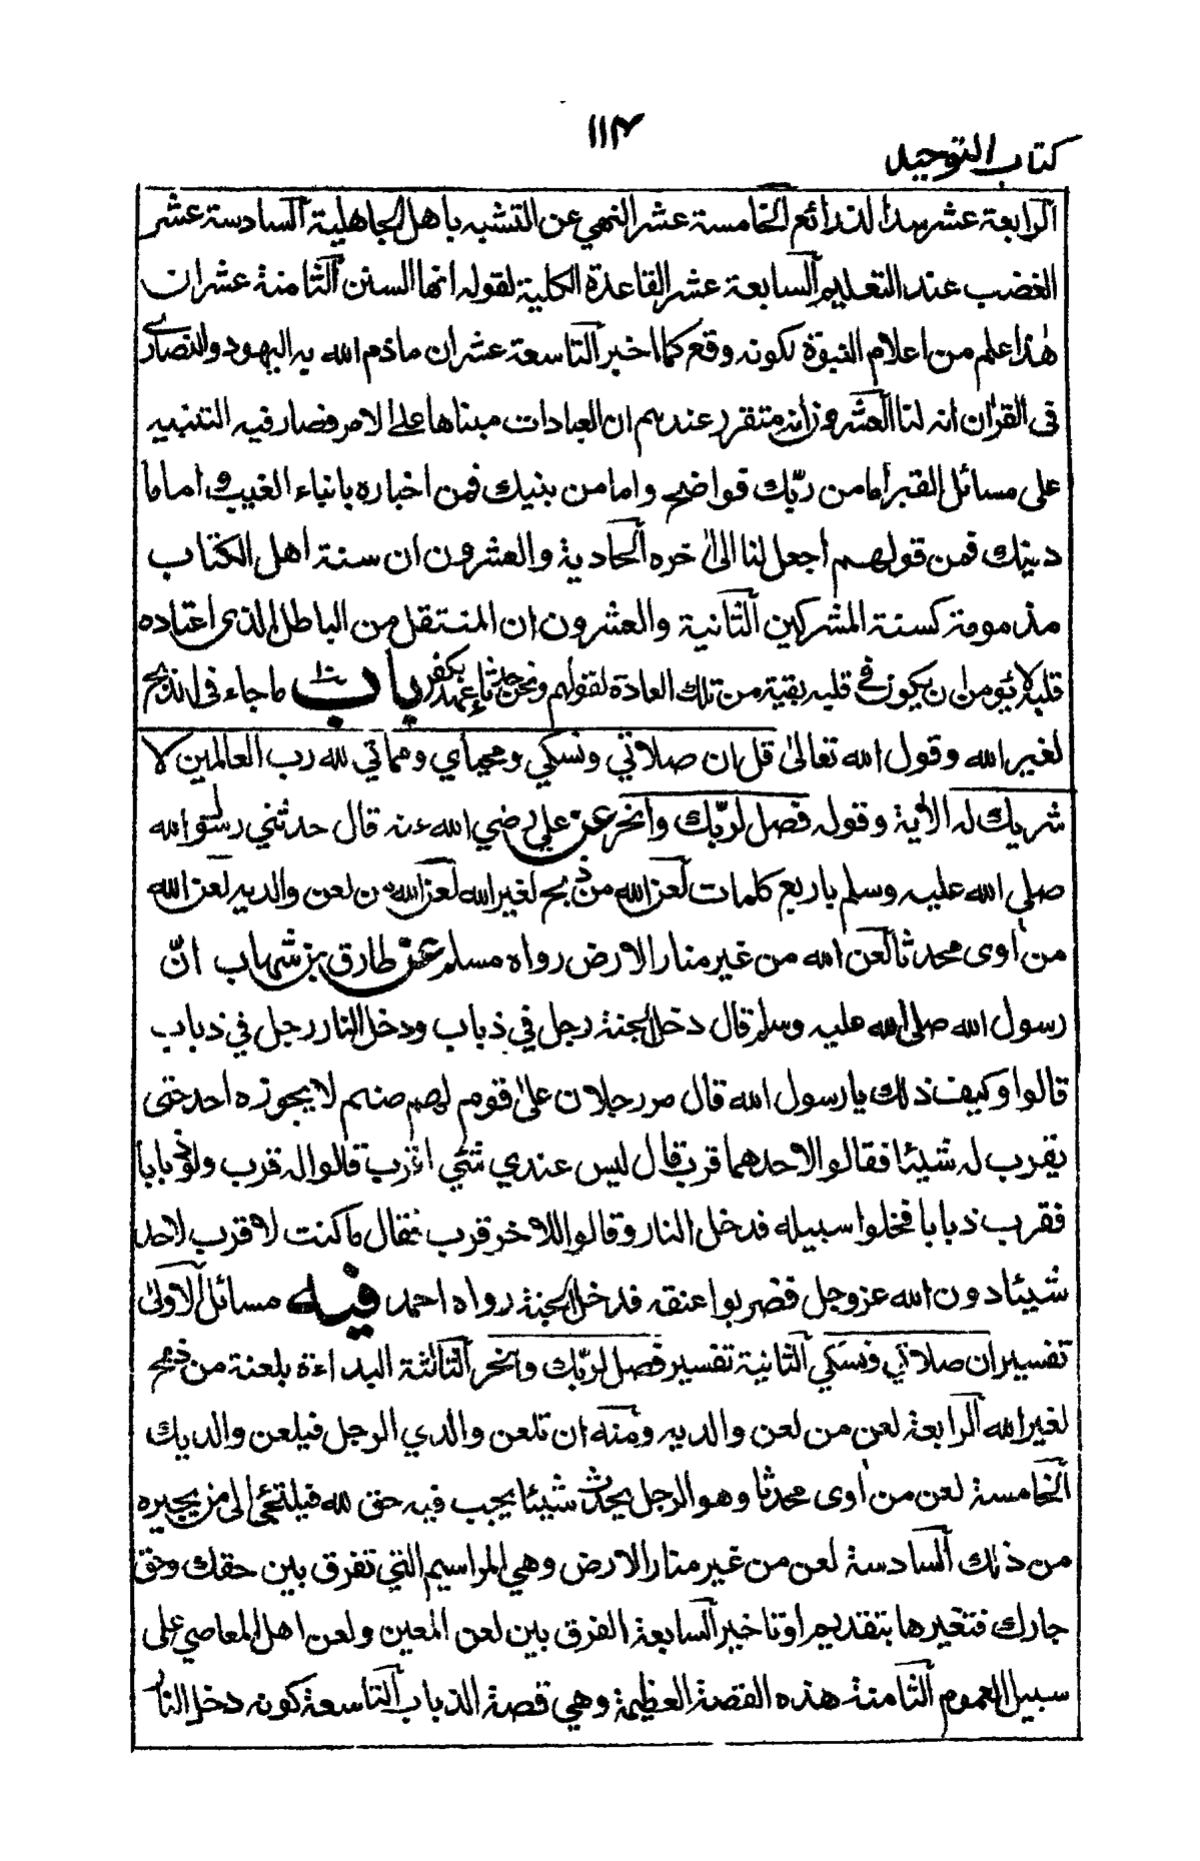 ١١٣
كتاب التوحيد
الرابعة عشر سد الذرائع الخامسة عشر النهي عن التشبه باهل الجاهلية السادسة عشر
الغضب عند التعليم السابعة عشر القاعدة الكلية لقوله انها السنن الثامنة عشر ان
هذا علم من اعلام النبوة لكونه وقع كما اخبر التاسعة عشر ان ماذم الله به اليهود والنصارى
فى القرآن انه لنا العشرون انه متقرر عندهم ان العبادات مبناها على الامر فصار فيه التنبيه
على مسائل القبر أما من ربّك فواضح واما من بنيك فمن اخباره بانباء الغيب و اماما
دينك فمن قولهم أجعل لنا الىٰ خره الحادية والعشرون ان سنة اهل الكتاب
مذمومة كسنة المشركين الثانية والعشرون ان المنتقل من الباطل الذى اعتاده
قلبه لا يؤمن ان يكون فى قلبه بقية من تلك العادة لقولهم ونحن حدثاء عهد بكفر باب ماجاء فى الذبح
لغير الله وقول الله تعالىٰ قل ان صلاتي ونسكي ومحياي ومماتي لله رب العالمين لا
شريك له الأية وقوله فصل لربّك وانحر عن علي رضي الله عنه قال حدثني رسول الله
صلى الله عليه وسلم باربع كلمات لعن الله من ذبح لغير الله لعن الله من لعن والديه لعن الله
من أوى محدثا لعن الله من غير منار الارض رواه مسلم عن طارق بن شهاب انّ
رسول الله صلى الله عليه وسلم قال دخل الجنة رجل في ذباب ودخل النار رجل في ذباب
قالوا وكيف ذلك يا رسول الله قال مر رجلان علىٰ قوم لهم صنم لا يجوزه احد حتى
يقرب له شيئا فقالوا لاحدهما قرب قال ليس عندي شئي اقرب قالوا له قرب ولو ذبابا
فقرب ذبابا فخلوا سبيله فدخل النار وقالوا للاخر قرب فقال ما كنت لاقرب لاحد
شيئا دون الله عزوجل فضربوا عنقه فدخل الجنة رواه احمد فيه مسائل الاولىٰ
تفسير ان صلاتي ونسكي الثانية تفسير فصل لربّك وانحر الثالثة البداءة بلعنة من ذبح
لغير الله الرابعة لعن من لعن والديه ومنه ان تلعن والدي الرجل فيلعن والديك
الخامسة لعن من أوى محدثا وهو الرجل يحدث شيئا يجب فيه حق لله فيلتجئى الى من يجيره
من ذلك السادسة لعن من غير منار الارض وهي المراسيم التي تفرق بين حقك وحق
جارك فتغيرها بتقديم اوتاخير السابعة الفرق بين لعن المعين ولعن اهل المعاصي على
سبيل العموم الثامنة هذه القصة العظيمة وهي قصة الذباب التاسعة كونه دخل النار